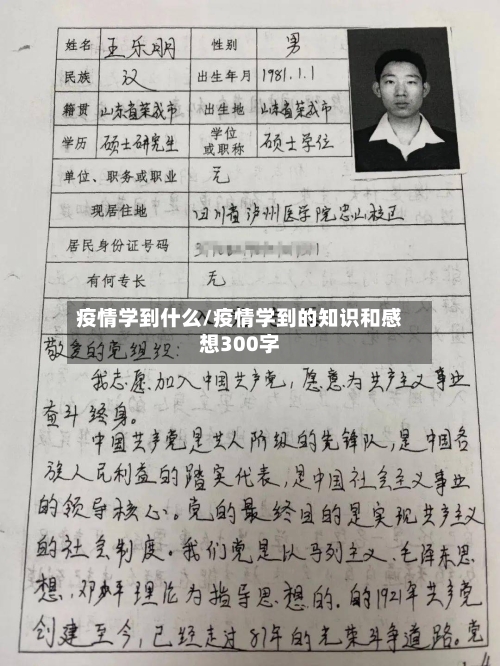 姓名 王乐朋 性别 男
民族 汉 出生年月 1981.1.1
籍贯 山东省荣成市 出生地 山东省荣成市
学历 硕士研究生 学位或职称 硕士学位
单位、职务或职业 无
现居住地 四川省泸州医学院忠山校区
居民身份证号码
有何专长 无
疫情学到什么/疫情学到的知识和感
想300字
敬爱的党组织:
我志愿加入中国共产党,愿意为共产主义事业
奋斗终身。
中国共产党是工人阶级的先锋队,是中国各
族人民利益的踏实代表,是中国社会主义事业
的领导核心。党的最终目的是实现共产主义
的社会制度。我们党是以马列主义、毛泽东思
想,邓小平理论为指导思想的。的1921年共产党
创建至今,已经走过87年的光荣斗争道路。党